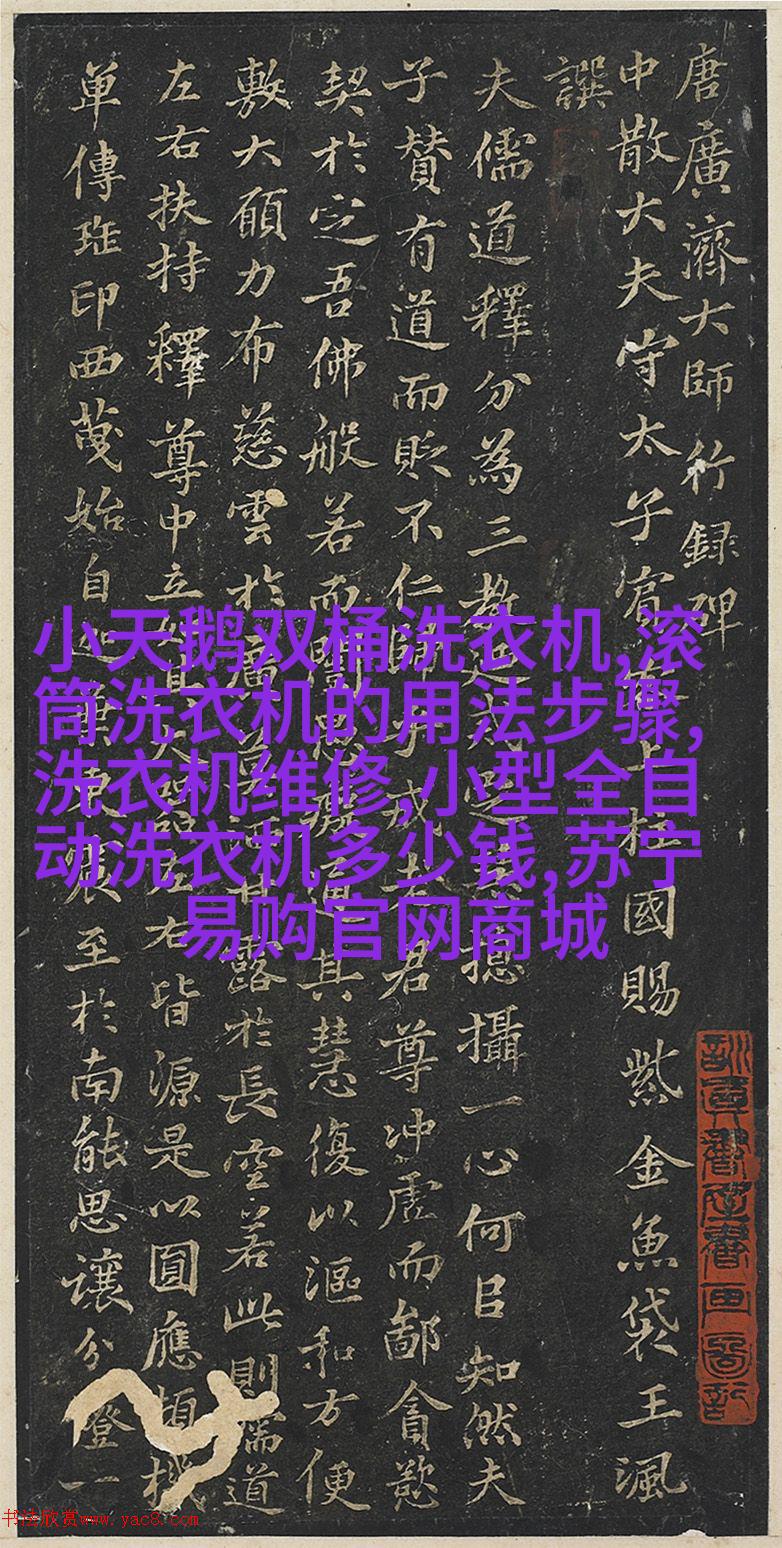 唐廣濟大師行録碑
中散大夫守太子賓上柱國賜紫金魚袋王渢
譔
夫儒道釋分為三教迹則是攝一心何㠯知然夫
子贊有道而貶不仁歸乎成君尊冲虛而鄙貪慾
契於定吾佛般若而闡通其慧復以漚和方便
敷大願力布慈雲於層露於長空若此則儒道
左右扶持釋尊中立右皆源是以圓應頓機
單傳班印西蔑始自迦東至於南能思讓分燈一
小天鹅双桶洗衣机,滚
筒洗衣机的用法步骤,
洗衣机维修,小型全自
动洗衣机多少钱,苏宁
易购官网商城
书法欣赏www.yac8.com